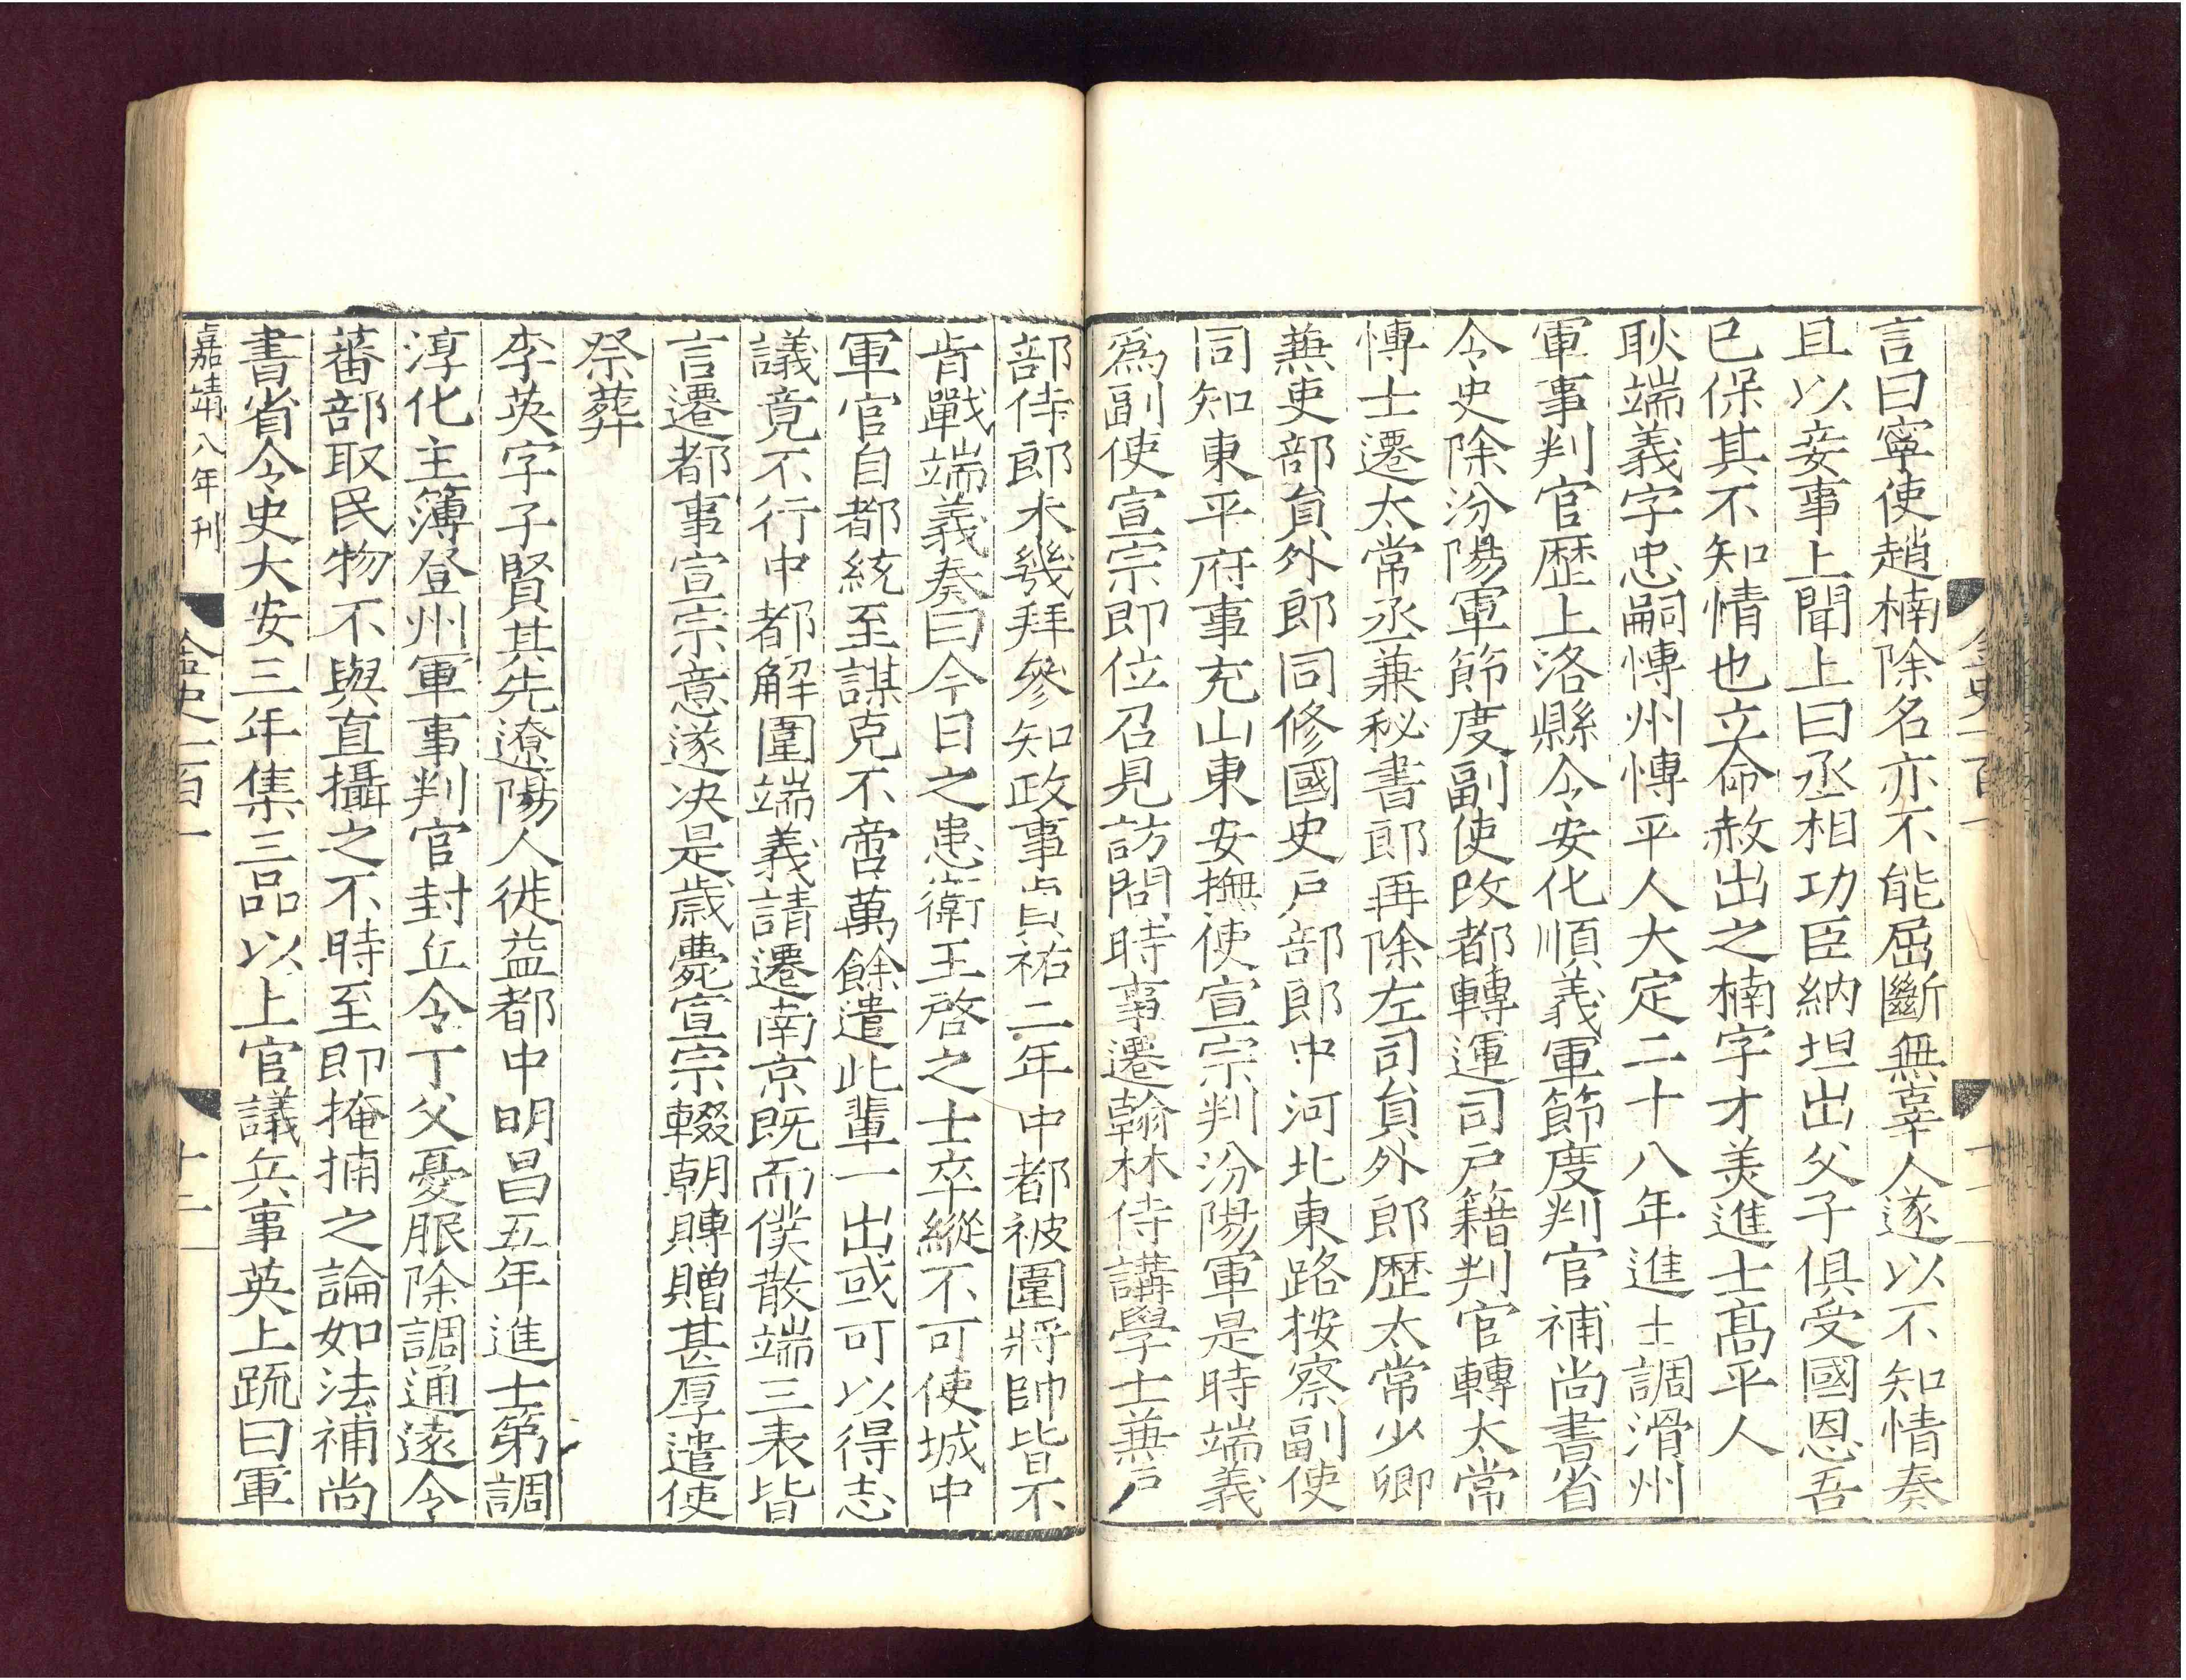 言曰寧使趙楠除名亦不能屈斷無辜人遂以不知情奏
且以妾事上聞上曰丞相功臣納坦出父子俱受國恩吾
已保其不知情也立命赦出之楠字才美進士髙平人
耿端義字忠嗣愽州愽平人大定二十八年進士調滑州
軍事判官歴上洛縣令安化順義軍節度判官補尚書省
令史除汾陽軍節度副使改都轉運司户籍判官轉太常
愽士遷太常丞兼秘書郎再除左司貟外郎歴太常少卿
兼吏部貟外郎同修國史户部郎中河北東路按察副使
同知東平府事充山東安撫使宣宗判汾陽軍是時端義
爲副使宣宗即位召見訪問時事遷翰林侍講學士兼户
部侍郎未幾拜參知政事貞祐二年中都被圍將帥皆不
肯戰端義奏曰今日之患衛王啓之士卒縱不可使城中
軍官自都統至謀克不啻萬餘遣此輩一出或可以得志
議竟不行中都解圍端義請遷南京既而僕散端三表皆
言遷都事宣宗意遂决是歳薨宣宗輟朝賻贈甚厚遣使
祭葬
李英字子賢其先遼陽人徙益都中明昌五年進士第調
淳化主簿登州軍事判官封丘令丁父憂服除調通遠令
蕃部取民物不與直攝之不時至即掩捕之論如法補尚
書省令史大安三年集三品以上官議兵事英上疏曰軍
嘉靖八年刊
金史一百一
十二